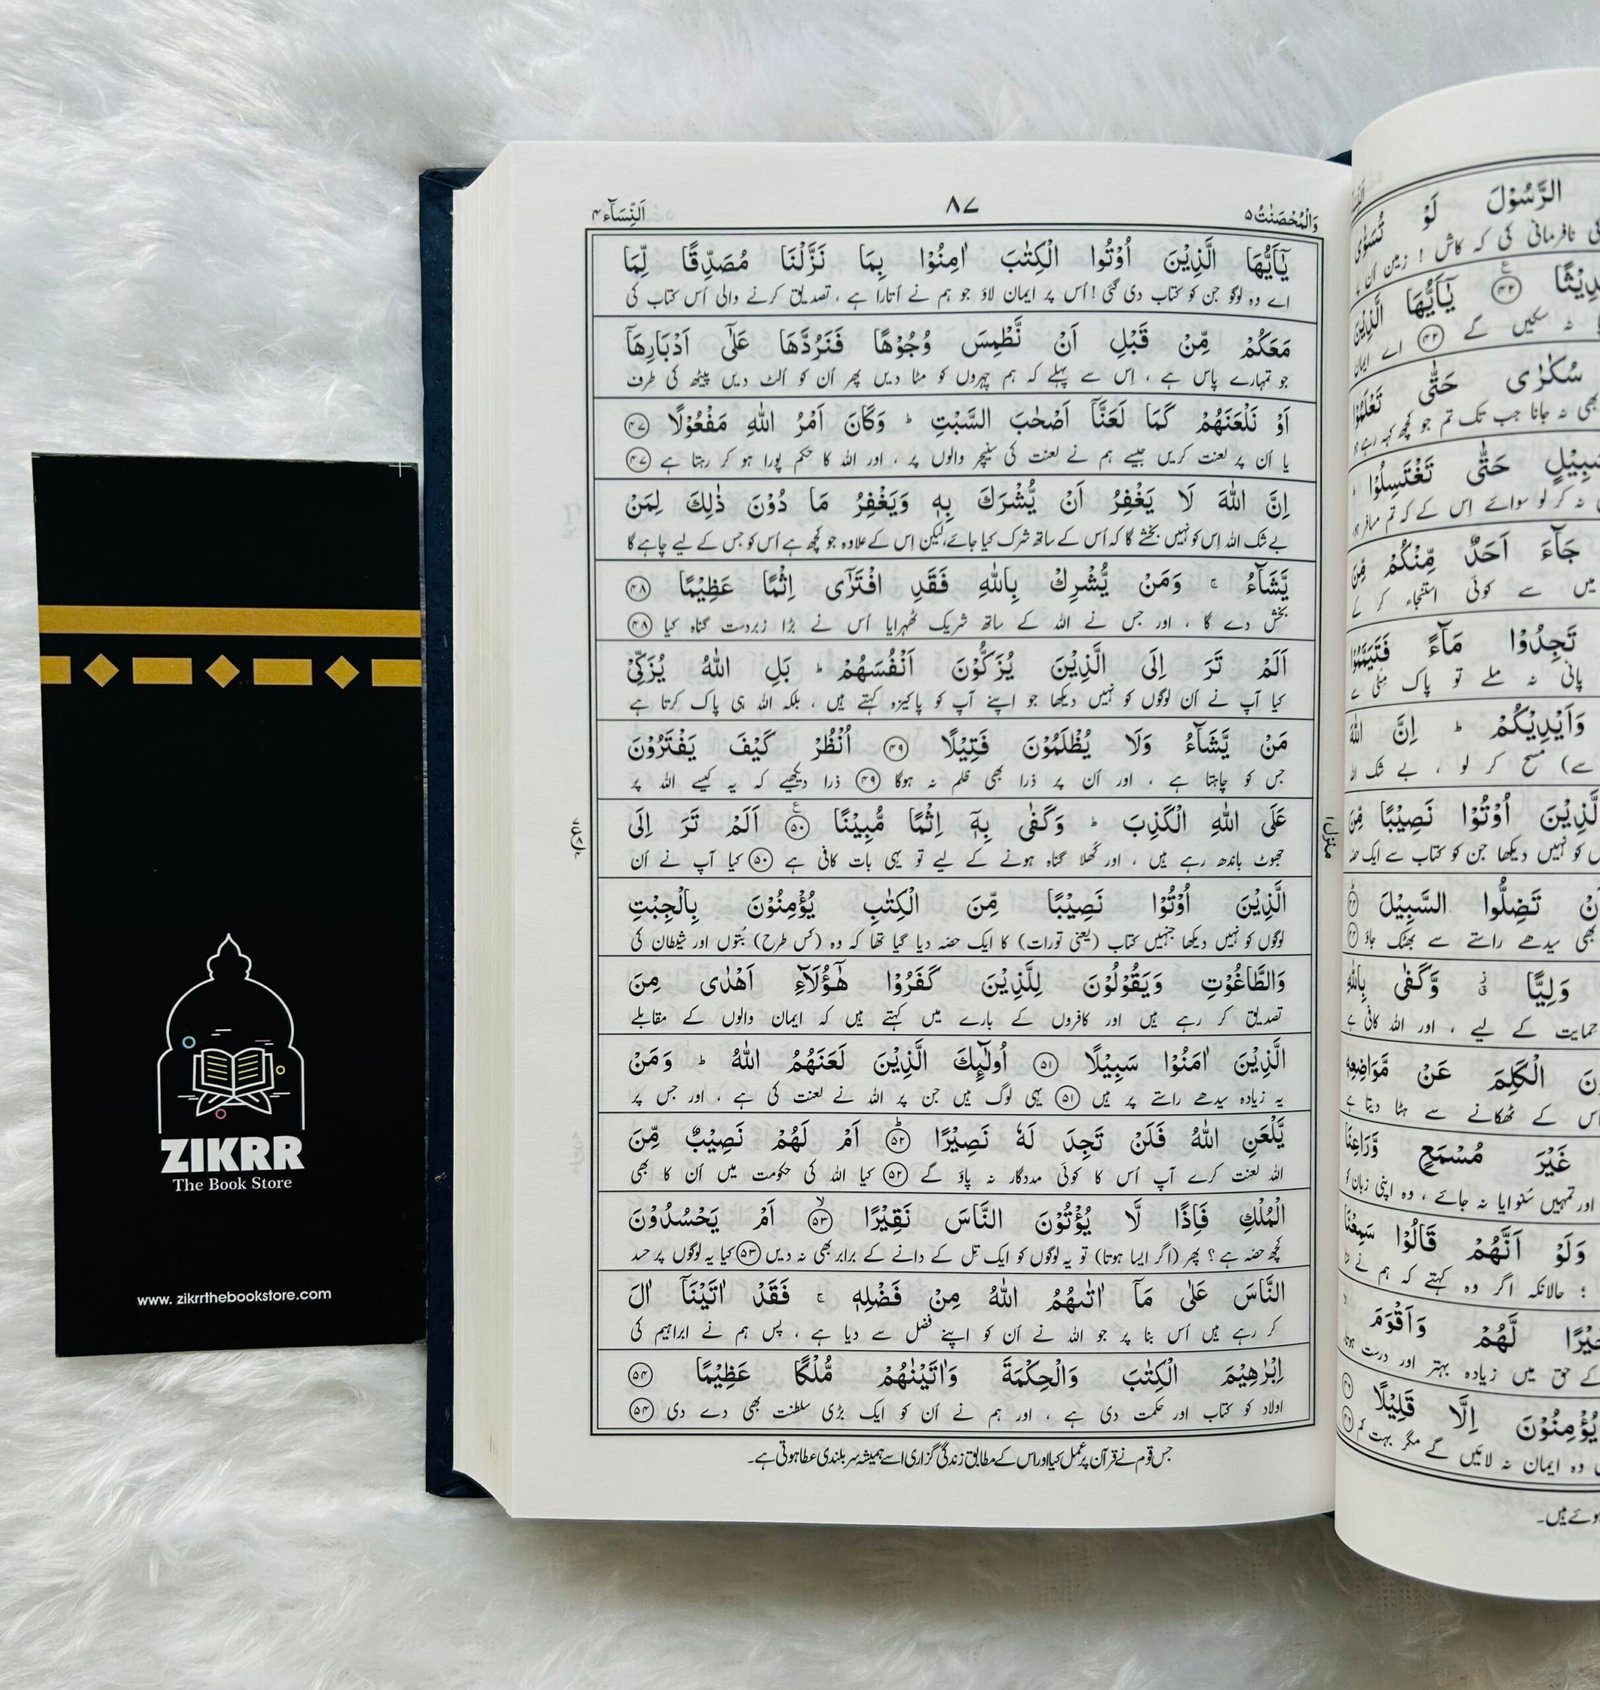 ZIKRR
The Book Store
www. zikrrthebookstore.com
اَلنِّسَآء ۴
۸۷
وَالْمُحْصَنٰتُ ۵
يٰۤاَيُّهَا الَّذِيْنَ اُوْتُوا الْكِتٰبَ اٰمِنُوْا بِمَا نَزَّلْنَا مُصَدِّقًا لِّمَا
اے وہ لوگو جن کو کتاب دی گئی! اُس پر ایمان لاؤ جو ہم نے اُتارا ہے ، تصدیق کرنے والی اُس کتاب کی
مَعَكُمْ مِّنْ قَبْلِ اَنْ نَّطْمِسَ وُجُوْهًا فَنَرُدَّهَا عَلٰٓى اَدْبَارِهَاۤ
جو تمہارے پاس ہے ، اِس سے پہلے کہ ہم چہروں کو مٹا دیں پھر اُن کو اُلٹ دیں پیٹھ کی طرف
اَوْ نَلْعَنَهُمْ كَمَا لَعَنَّاۤ اَصْحٰبَ السَّبْتِ ؕ وَكَانَ اَمْرُ اللّٰهِ مَفْعُوْلًا ۴۷
یا اُن پر لعنت کریں جیسے ہم نے لعنت کی سنیچر والوں پر ، اور اللہ کا حکم پورا ہو کر رہتا ہے ۴۷
اِنَّ اللّٰهَ لَا يَغْفِرُ اَنْ يُّشْرَكَ بِهٖ وَيَغْفِرُ مَا دُوْنَ ذٰلِكَ لِمَنْ
بے شک اللہ اِس کو نہیں بخشے گا کہ اُس کے ساتھ شرک کیا جائے، لیکن اِس کے علاوہ جو کچھ ہے اُس کو جس کے لیے چاہے گا
يَّشَآءُ ۚ وَمَنْ يُّشْرِكْ بِاللّٰهِ فَقَدِ افْتَرٰٓى اِثْمًا عَظِيْمًا ۴۸
بخش دے گا ، اور جس نے اللہ کے ساتھ شریک ٹھہرایا اُس نے بڑا زبردست گناہ کیا ۴۸
اَلَمْ تَرَ اِلَى الَّذِيْنَ يُزَكُّوْنَ اَنْفُسَهُمْ ؕ بَلِ اللّٰهُ يُزَكِّيْ
کیا آپ نے اُن لوگوں کو نہیں دیکھا جو اپنے آپ کو پاکیزہ کہتے ہیں ، بلکہ اللہ ہی پاک کرتا ہے
مَنْ يَّشَآءُ وَلَا يُظْلَمُوْنَ فَتِيْلًا ۴۹ اُنْظُرْ كَيْفَ يَفْتَرُوْنَ
جس کو چاہتا ہے ، اور اُن پر ذرا بھی ظلم نہ ہوگا ۴۹ ذرا دیکھیے کہ یہ کیسے اللہ پر
عَلَى اللّٰهِ الْكَذِبَ ؕ وَكَفٰى بِهٖۤ اِثْمًا مُّبِيْنًا ۵۰ اَلَمْ تَرَ اِلَى
جھوٹ باندھ رہے ہیں ، اور کُھلا گناہ ہونے کے لیے تو یہی بات کافی ہے ۵۰ کیا آپ نے اُن
الَّذِيْنَ اُوْتُوْا نَصِيْبًا مِّنَ الْكِتٰبِ يُؤْمِنُوْنَ بِالْجِبْتِ
لوگوں کو نہیں دیکھا جنہیں کتاب (یعنی تورات) کا ایک حصّہ دیا گیا تھا کہ وہ (کس طرح) بُتوں اور شیطان کی
وَالطَّاغُوْتِ وَيَقُوْلُوْنَ لِلَّذِيْنَ كَفَرُوْا هٰۤؤُلَآءِ اَهْدٰى مِنَ
تصدیق کر رہے ہیں اور کافروں کے بارے میں کہتے ہیں کہ ایمان والوں کے مقابلے
الَّذِيْنَ اٰمَنُوْا سَبِيْلًا ۵۱ اُولٰٓئِكَ الَّذِيْنَ لَعَنَهُمُ اللّٰهُ ؕ وَمَنْ
یہ زیادہ سیدھے راستے پر ہیں ۵۱ یہی لوگ ہیں جن پر اللہ نے لعنت کی ہے ، اور جس پر
يَّلْعَنِ اللّٰهُ فَلَنْ تَجِدَ لَهٗ نَصِيْرًا ۵۲ اَمْ لَهُمْ نَصِيْبٌ مِّنَ
اللہ لعنت کرے آپ اُس کا کوئی مددگار نہ پاؤ گے ۵۲ کیا اللہ کی حکومت میں اُن کا بھی
الْمُلْكِ فَاِذًا لَّا يُؤْتُوْنَ النَّاسَ نَقِيْرًا ۵۳ اَمْ يَحْسُدُوْنَ
کچھ حصّہ ہے ؟ پھر (اگر ایسا ہوتا) تو یہ لوگوں کو ایک تِل کے دانے کے برابر بھی نہ دیں ۵۳ کیا یہ لوگوں پر حسد
النَّاسَ عَلٰى مَاۤ اٰتٰىهُمُ اللّٰهُ مِنْ فَضْلِهٖ ۚ فَقَدْ اٰتَيْنَاۤ اٰلَ
کر رہے ہیں اُس بنا پر جو اللہ نے اُن کو اپنے فضل سے دیا ہے ، پس ہم نے ابراہیم کی
اِبْرٰهِيْمَ الْكِتٰبَ وَالْحِكْمَةَ وَاٰتَيْنٰهُمْ مُّلْكًا عَظِيْمًا ۵۴
اولاد کو کتاب اور حکمت دی ہے ، اور ہم نے اُن کو ایک بڑی سلطنت بھی دے دی ۵۴
جس قوم نے قرآن پر عمل کیا اور اس کے مطابق زندگی گزاری اسے ہمیشہ سربلندی عطا ہوتی ہے۔
منزل ۱
الرَّسُوْلَ لَوْ تُسَوّٰى
نافرمانی کی کہ کاش ! زمین اُن
۴۲ يٰۤاَيُّهَا الَّذِيْنَ
نہ سکیں گے ۴۲ اے ایمان
سُكٰرٰى حَتّٰى تَعْلَمُوْا
بھی نہ جانا جب تک تم جو کچھ کہہ رہے ہو
حَتّٰى تَغْتَسِلُوْا
نہ کر لو سوائے اِس کے کہ تم مسافر ہو
جَآءَ اَحَدٌ مِّنْكُمْ مِّنَ
میں سے کوئی استنجاء کر کے
تَجِدُوْا مَآءً فَتَيَمَّمُوْا
پانی نہ ملے تو پاک مٹی
وَاَيْدِيْكُمْ ؕ اِنَّ اللّٰهَ
سے) مسح کر لو ، بے شک اللہ
اُوْتُوْا نَصِيْبًا مِّنَ
کو نہیں دیکھا جن کو کتاب سے ایک حصّہ
تَضِلُّوا السَّبِيْلَ
بھی سیدھے راستے سے بھٹک جاؤ
وَلِيًّا وَّكَفٰى بِاللّٰهِ
حمایت کے لیے ، اور اللہ کافی ہے
الْكَلِمَ عَنْ مَّوَاضِعِهٖ
کے ٹھکانے سے ہٹا دیتا ہے
غَيْرَ مُسْمَعٍ وَّرَاعِنَا
اور تمہیں سنوایا نہ جائے ، وہ اپنی زبان کو
وَلَوْ اَنَّهُمْ قَالُوْا سَمِعْنَا
؛ حالانکہ اگر وہ کہتے کہ ہم نے
لَّهُمْ وَاَقْوَمَ
کے حق میں زیادہ بہتر اور درست
يُؤْمِنُوْنَ اِلَّا قَلِيْلًا
وہ ایمان نہ لائیں گے مگر بہت کم